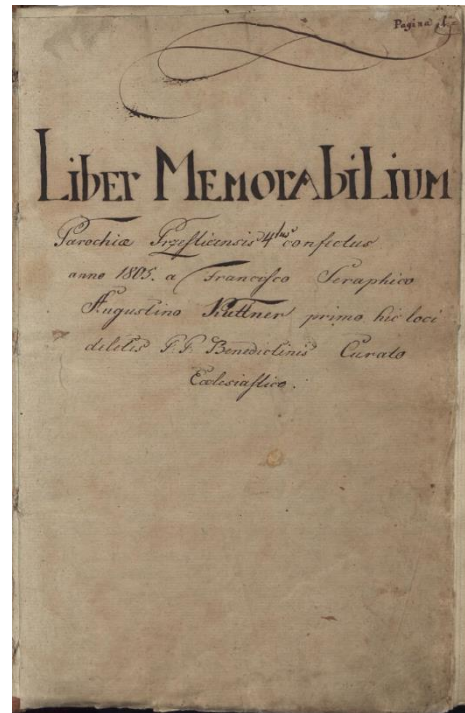 Pagina 1.
Liber Memorabilium
Parochiæ Przesticensis 4tus confectus
anno 1805. a Francisco Seraphico
Augustino Kuttner primo hic loci
deletis P. P. Benedictinis Curato
Ecclesiastico.